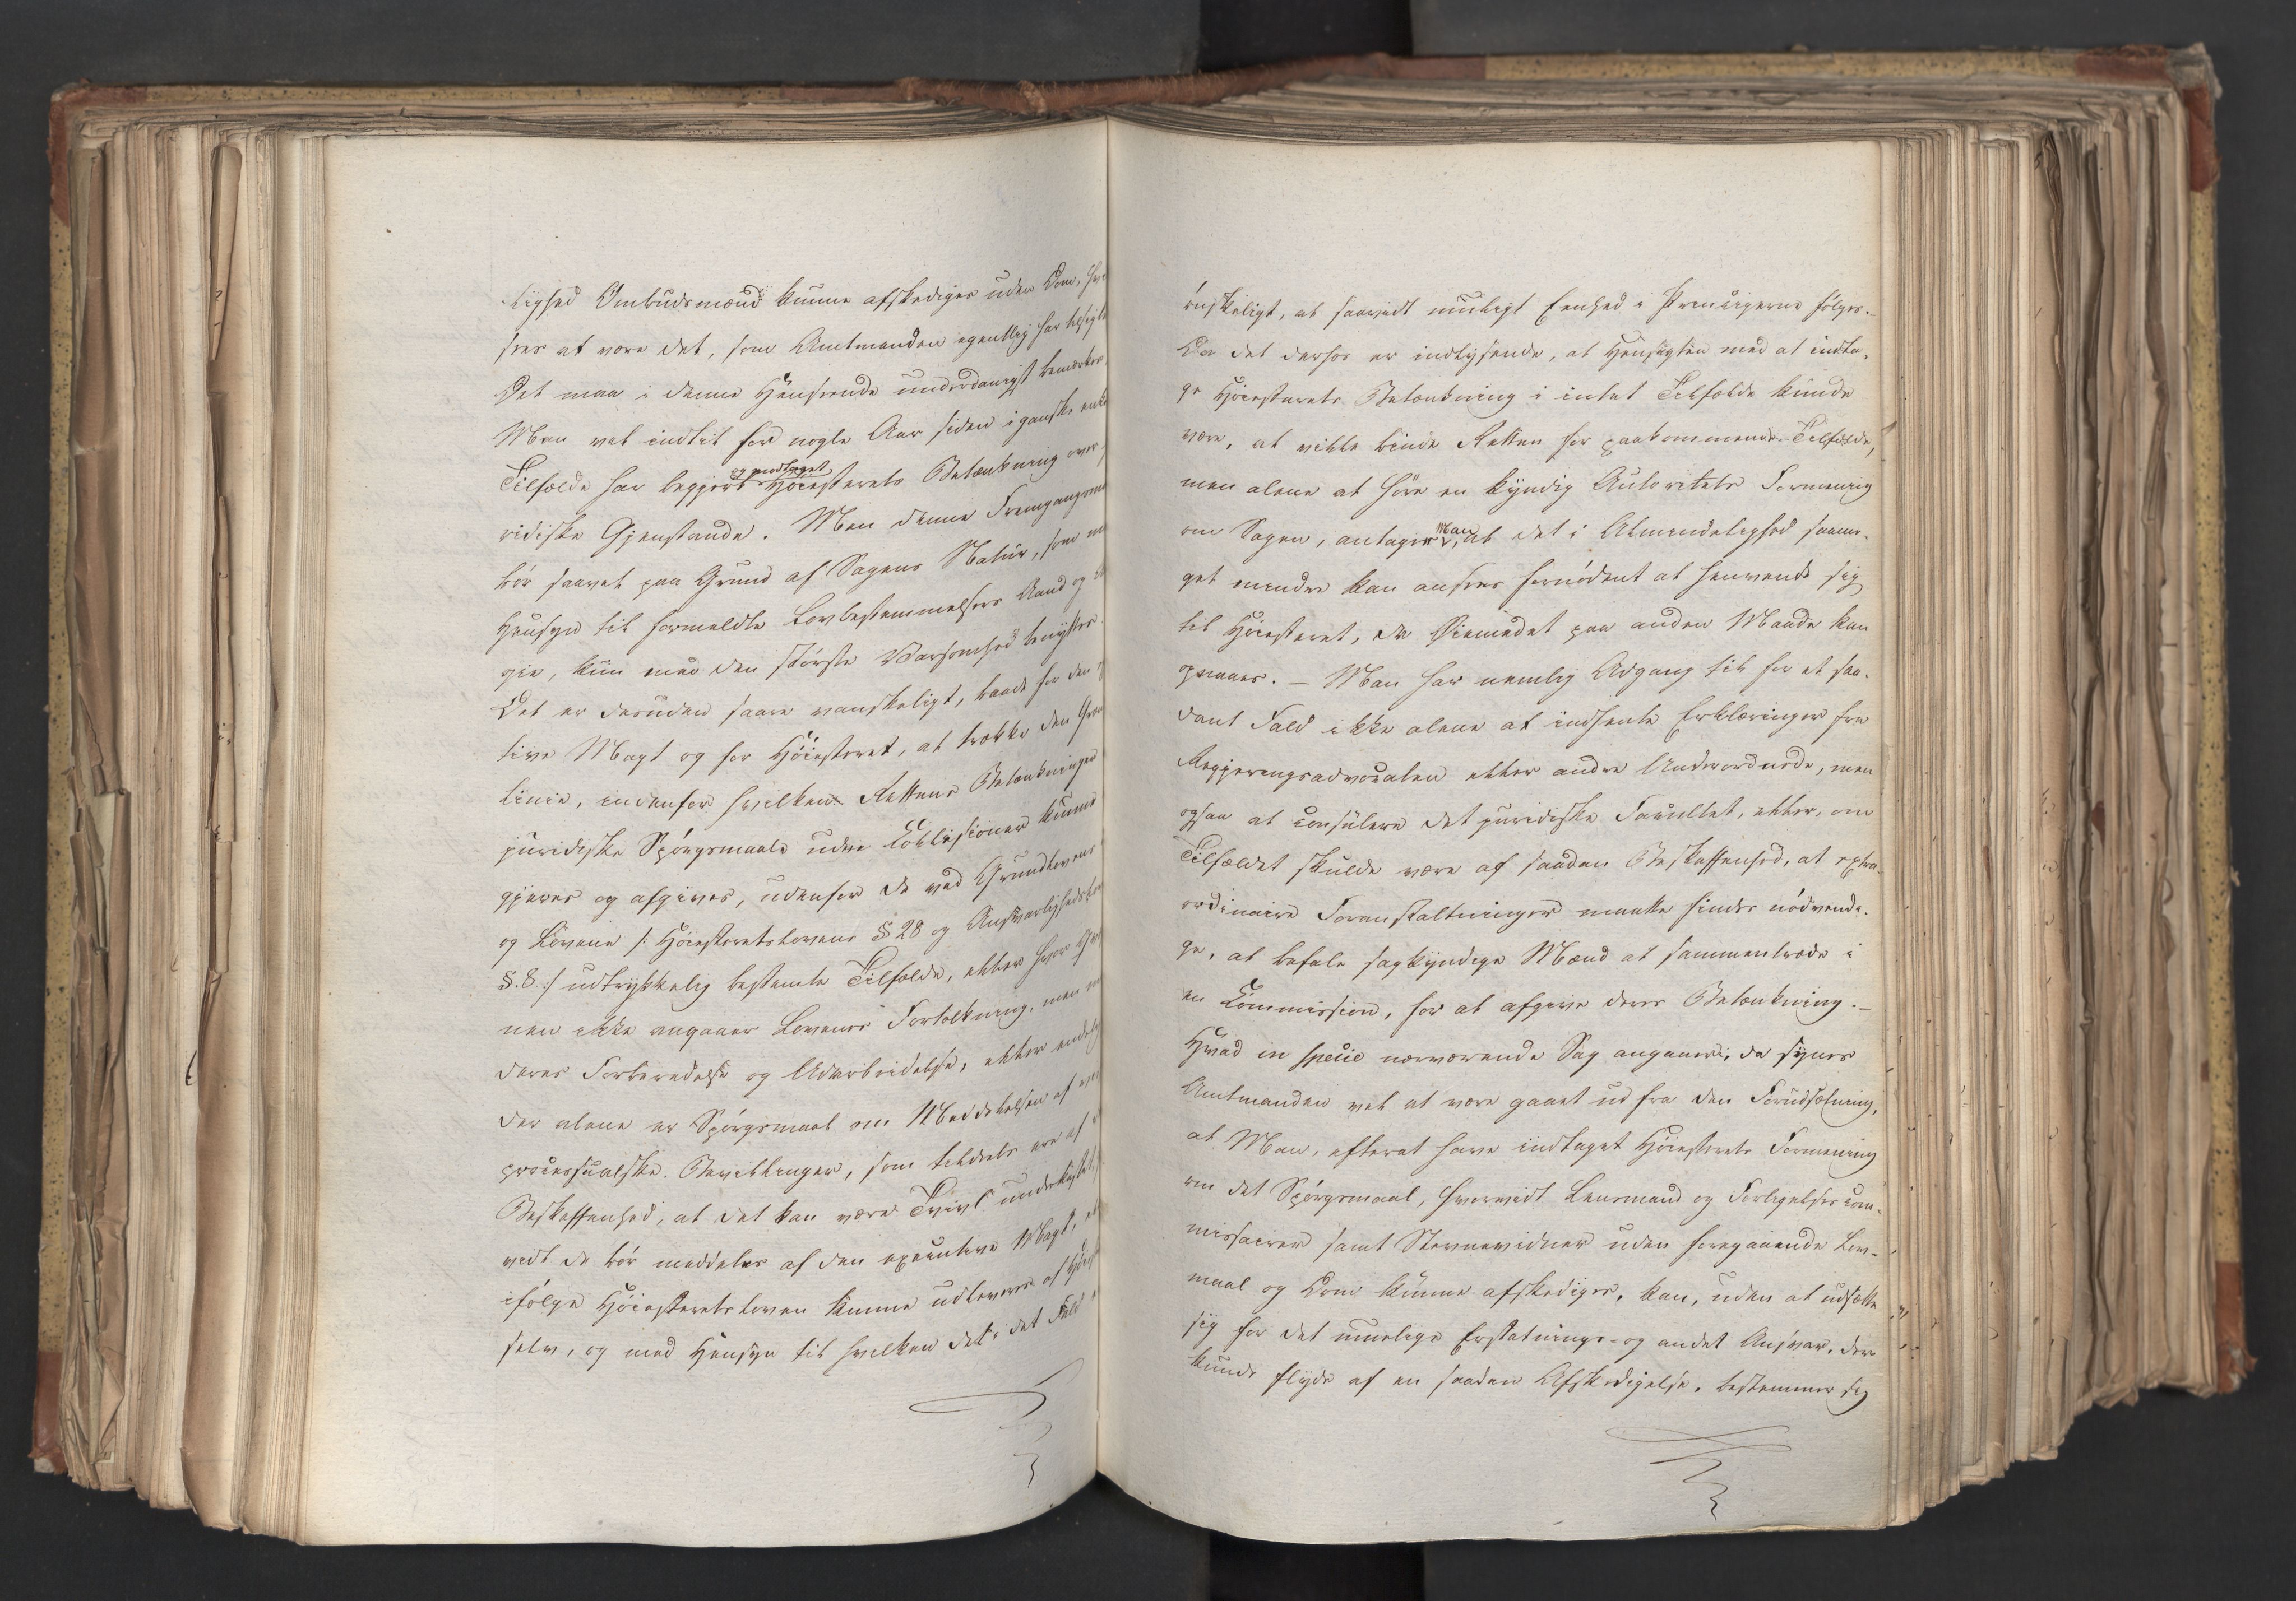 lighed Ombudsmænd kunne afskediges uden Dom, hvil
sees at være det, som Amtmanden egentlig har tilsigtet
Det maa i denne Henseende underdanigst bemærkes
Man vel indtil for nogle Aar siden i ganske enkelte
Tilfælde har begjert og modtaget Høiesterets Betænkning over
ridiske Gjenstande. Men denne Fremgangsmaade
bør saavel paa Grund af Sagens Natur, som med
Hensyn til formeldte Lovbestemmelsers Aand og
gie, kun med den største Varsomhed benyttes.
Det er desuden saare vanskeligt, baade for den
tive Magt og for Høiesteret, at trække den Grændse
linie, indenfor hvilken Rettens Betænkninger
juridiske Spørgsmaale uden Collisioner kunne
gjeres og afgives, udenfor de ved Grundlovens
og Lovene /: Høiesteretslovens § 28 og Ansvarlighedslovens
§. 8 :/ udtrykkelig bestemte Tilfælde, eller hvor
nen ikke angaaer Lovenes Fortolkning, men
deres Forberedelse og Udarbeidelse, eller endelig
der alene er Spørgsmaal om Meddelelsen af
processualske Bevillinger, som tildeels ere af
Beskaffenhed, at det kan være Tvivl underkastet,
vidt de bør meddeles af den executive Magt, eller
ifølge Høiesteretsloven kunne udleveres af Høiesteret
selv, og med Hensyn til hvilken det i det Fald
ønskeligt, at saavidt muligt Eenhed i Principerne følges.
Da det derhos er indlysende, at Hensigten med at indta-
ge Høiesterets Betænkning i intet Tilfælde kunde
være, at ville binde Retten for paakommende Tilfælde,
men alene at høre en kyndig Autoritets Formening
om Sagen, antager Man, at det i Almindelighed saame-
get mindre kan ansees fornødent at henvende sig
til Høiesteret, da Øiemedet paa anden Maade kan
opnaaes. – Man har nemlig Adgang til for et saa-
dant Fald ikke alene at indhente Erklæringer fra
Regjeringsadvocaten eller andre Underordnede, men
ogsaa at consulere det juridiske Facultet, eller, om
Tilfældet skulde være af saadan Beskaffenhed, at extra-
ordinaire Foranstaltninger maatte findes nødvendi-
ge, at befale sagkyndige Mænd at sammentræde i
en Commission, for at afgive deres Betænkning. –
Hvad in specie nærværende Sag angaaer, da synes
Amtmanden vel at være gaaet ud fra den Forudsætning,
at Man, efterat have indtaget Høiesterets Formening
om det Spørgsmaal, hvorvidt Lensmænd og Forligelsescom-
missairer samt Stevnevidner uden foregaaende Lov-
maal og Dom kunne afskediges, kan, uden at udsætte
sig for det muelige Erstatnings- og andet Ansvar, der
kunde flyde af en saadan Afskedigelse, bestemme sig